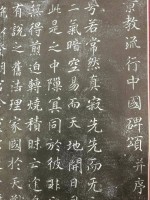 景教流行中國碑頌并序
粵若常然真寂先先而无
二氣暗空易而天地開日
此是之中隟冥同於彼非
無得煎迫轉燒積昧亡途
有說之舊法理家國於